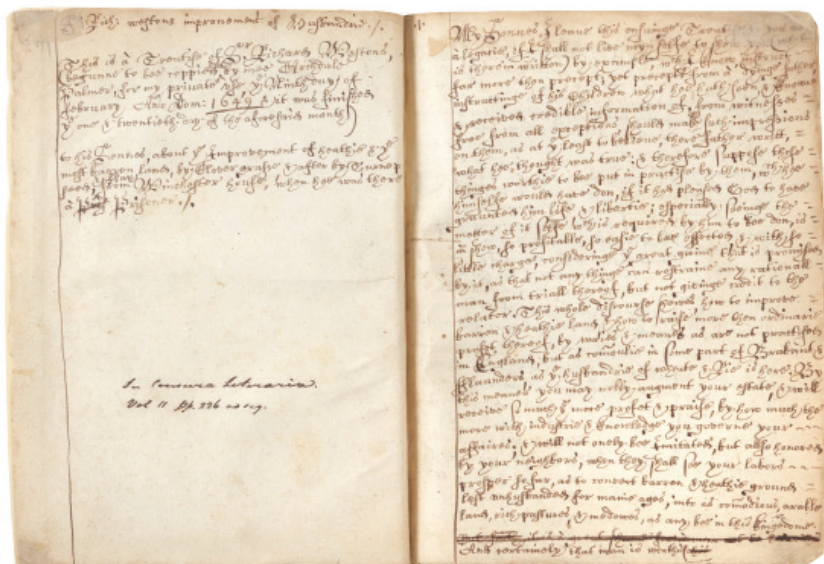 Rich: westons improvement of Husbandrie ./.
This is a Treatise of Sr Richard Westons,
begunne to bee coppied by mee Archdale
Palmer, for my private use ye Ninth day of
february Ano Dom: 1649 & it was finished
ye one & twentieth day of the aforesaid month
to his Sonnes, about ye Improvement of heathie & ye
most barren land, by Clover grasse & after by Turnep
seed, from Winchester house, when hee was there
a Prisoner ./.
In Censura Literaria.
Vol II pp. 236
.1.
My Sonnes, I leave this ensuinge Treatise
a legacie, (if I shall not live my selfe to show you
is therein written) by example, wch I know instructs
far more then precept; yet precept from a dying father
instructinge of his Children what hee hath seen, & known
& received credible information of, from witnesses
free from all exceptions should make such impressions
on them, as at ye least to beleeve, there father writt,
what hee thought was true: & therefore suppose those
thinges worthie to bee put in practise by them, wch hee
himselfe would have don, if it had pleased God to have
graunted him life & libertie: especially seeinge the
matter of it selfe wch is required by him to bee don, is
in show, so profitable, so easie to bee effected & with so
little charge, consideringe ye great gaine that is promised
by it, as that not any thinge can restraine any rationall
man from triall thereof, but not givinge credit to the
relator. This whole discourse showes how to improve
barren & heathie land, & how to raise more then ordinarie
profet thereof, by waies & meanes as are not practised
in England, but as comonlie in some part of Brabant &
Flaunders as ye husbandrie of wheate & Rie is here. By
this meanes you may nobly augment your estate, & will
receive so much ye more profet & praise, by how much the
more with industrie & knowledge you governe your
affaires; & will not onely bee Imitated, but allso honored
by your neighbors, when they shall see your labors
prosper so far, as to convert barren & heathie ground
left unhusbanded for manie ages, into as comodious, arable
land, rich pastures, & medowes, as any bee in this kingedome.
And certainely that man is worthie